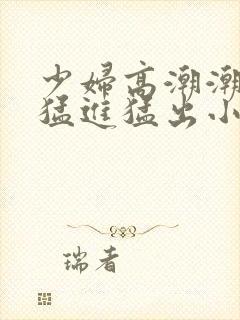 少婦高潮潮
猛進猛出小
瑞者